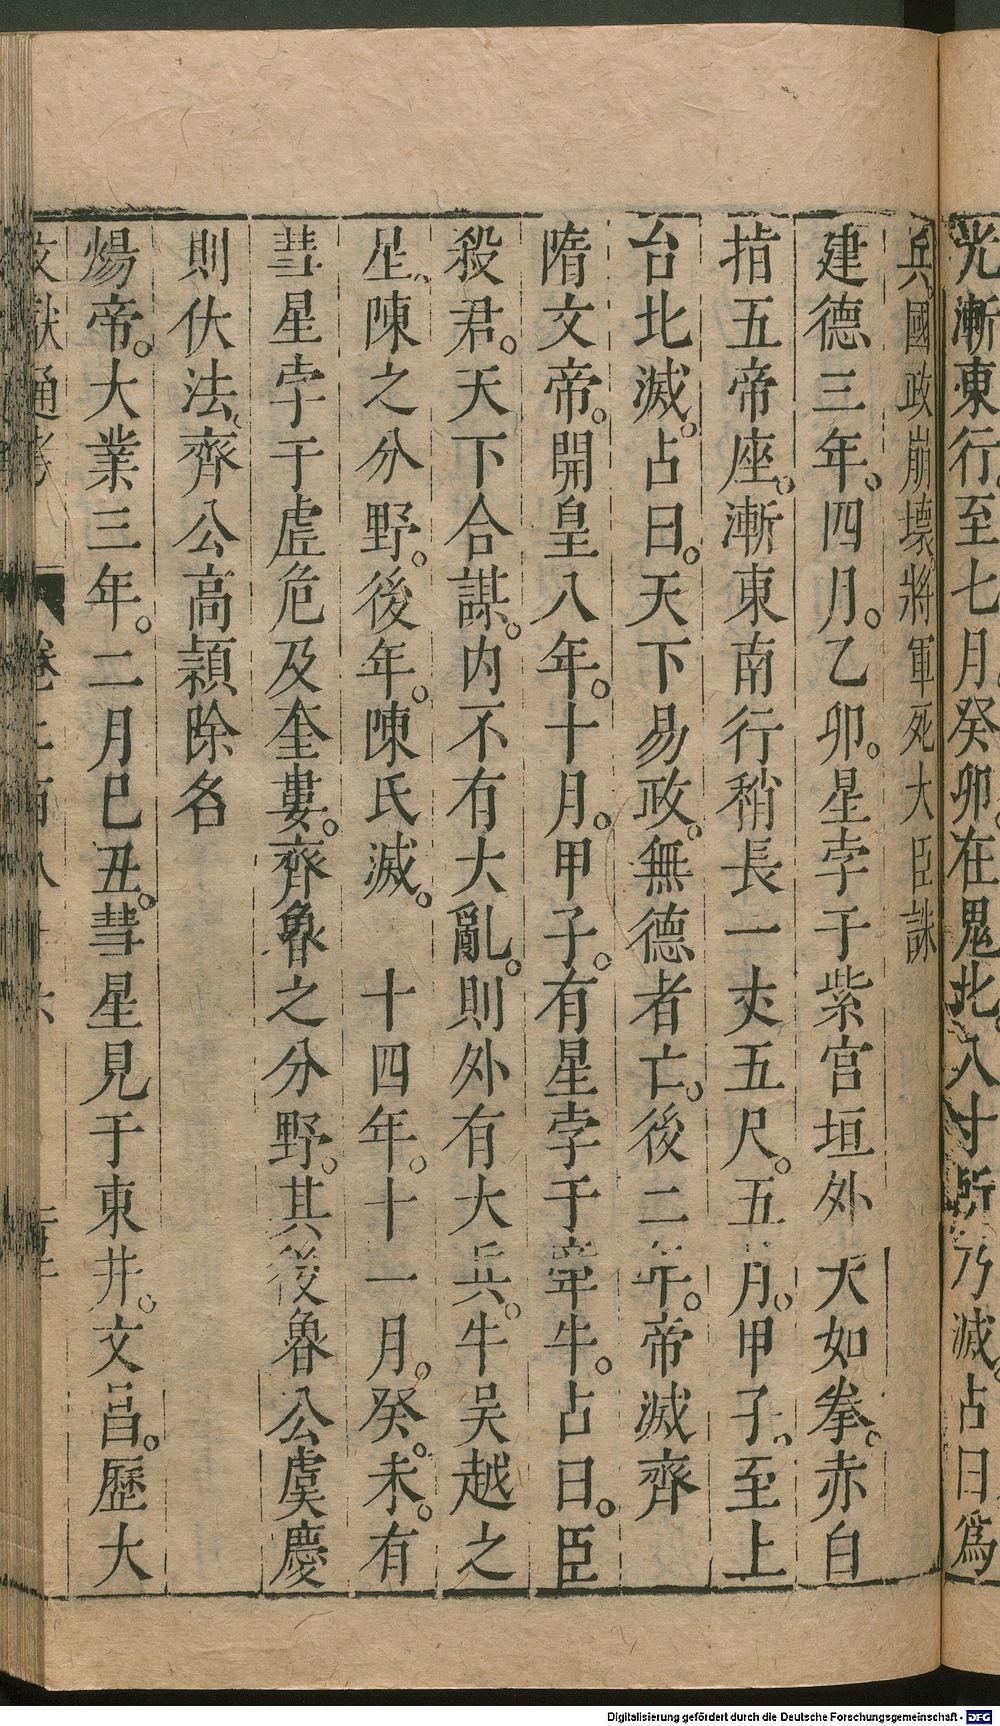 光漸東行至七月癸卯。在鬼北。八寸所乃滅。占曰爲
兵。國政崩壞。將軍死大臣誅
建德三年。四月。乙卯。星孛于紫宫垣外大如拳。赤白
指五帝座。漸東南行稍長一丈五尺。五月。甲子。至上
台北滅。占曰。天下易政。無德者亡。後二年。帝滅齊
隋文帝。開皇八年。十月。甲子。有星孛于牽牛。占曰。臣
殺君。天下合謀。内不有大亂。則外有大兵。牛吴越之
星、陳之分野。後年。陳氏滅。 十四年。十一月。癸。未。有
彗星孛于虛危及奎婁。齊魯之分野。其後魯公虞慶
則伏法、齊公高頴除名
煬帝。大業三年。二月巳丑。彗星見于東井。文昌。歷大
文獻通考 卷二百八十六
Digitalisierung gefördert durch die Deutsche Forschungsgemeinschaft - DFG